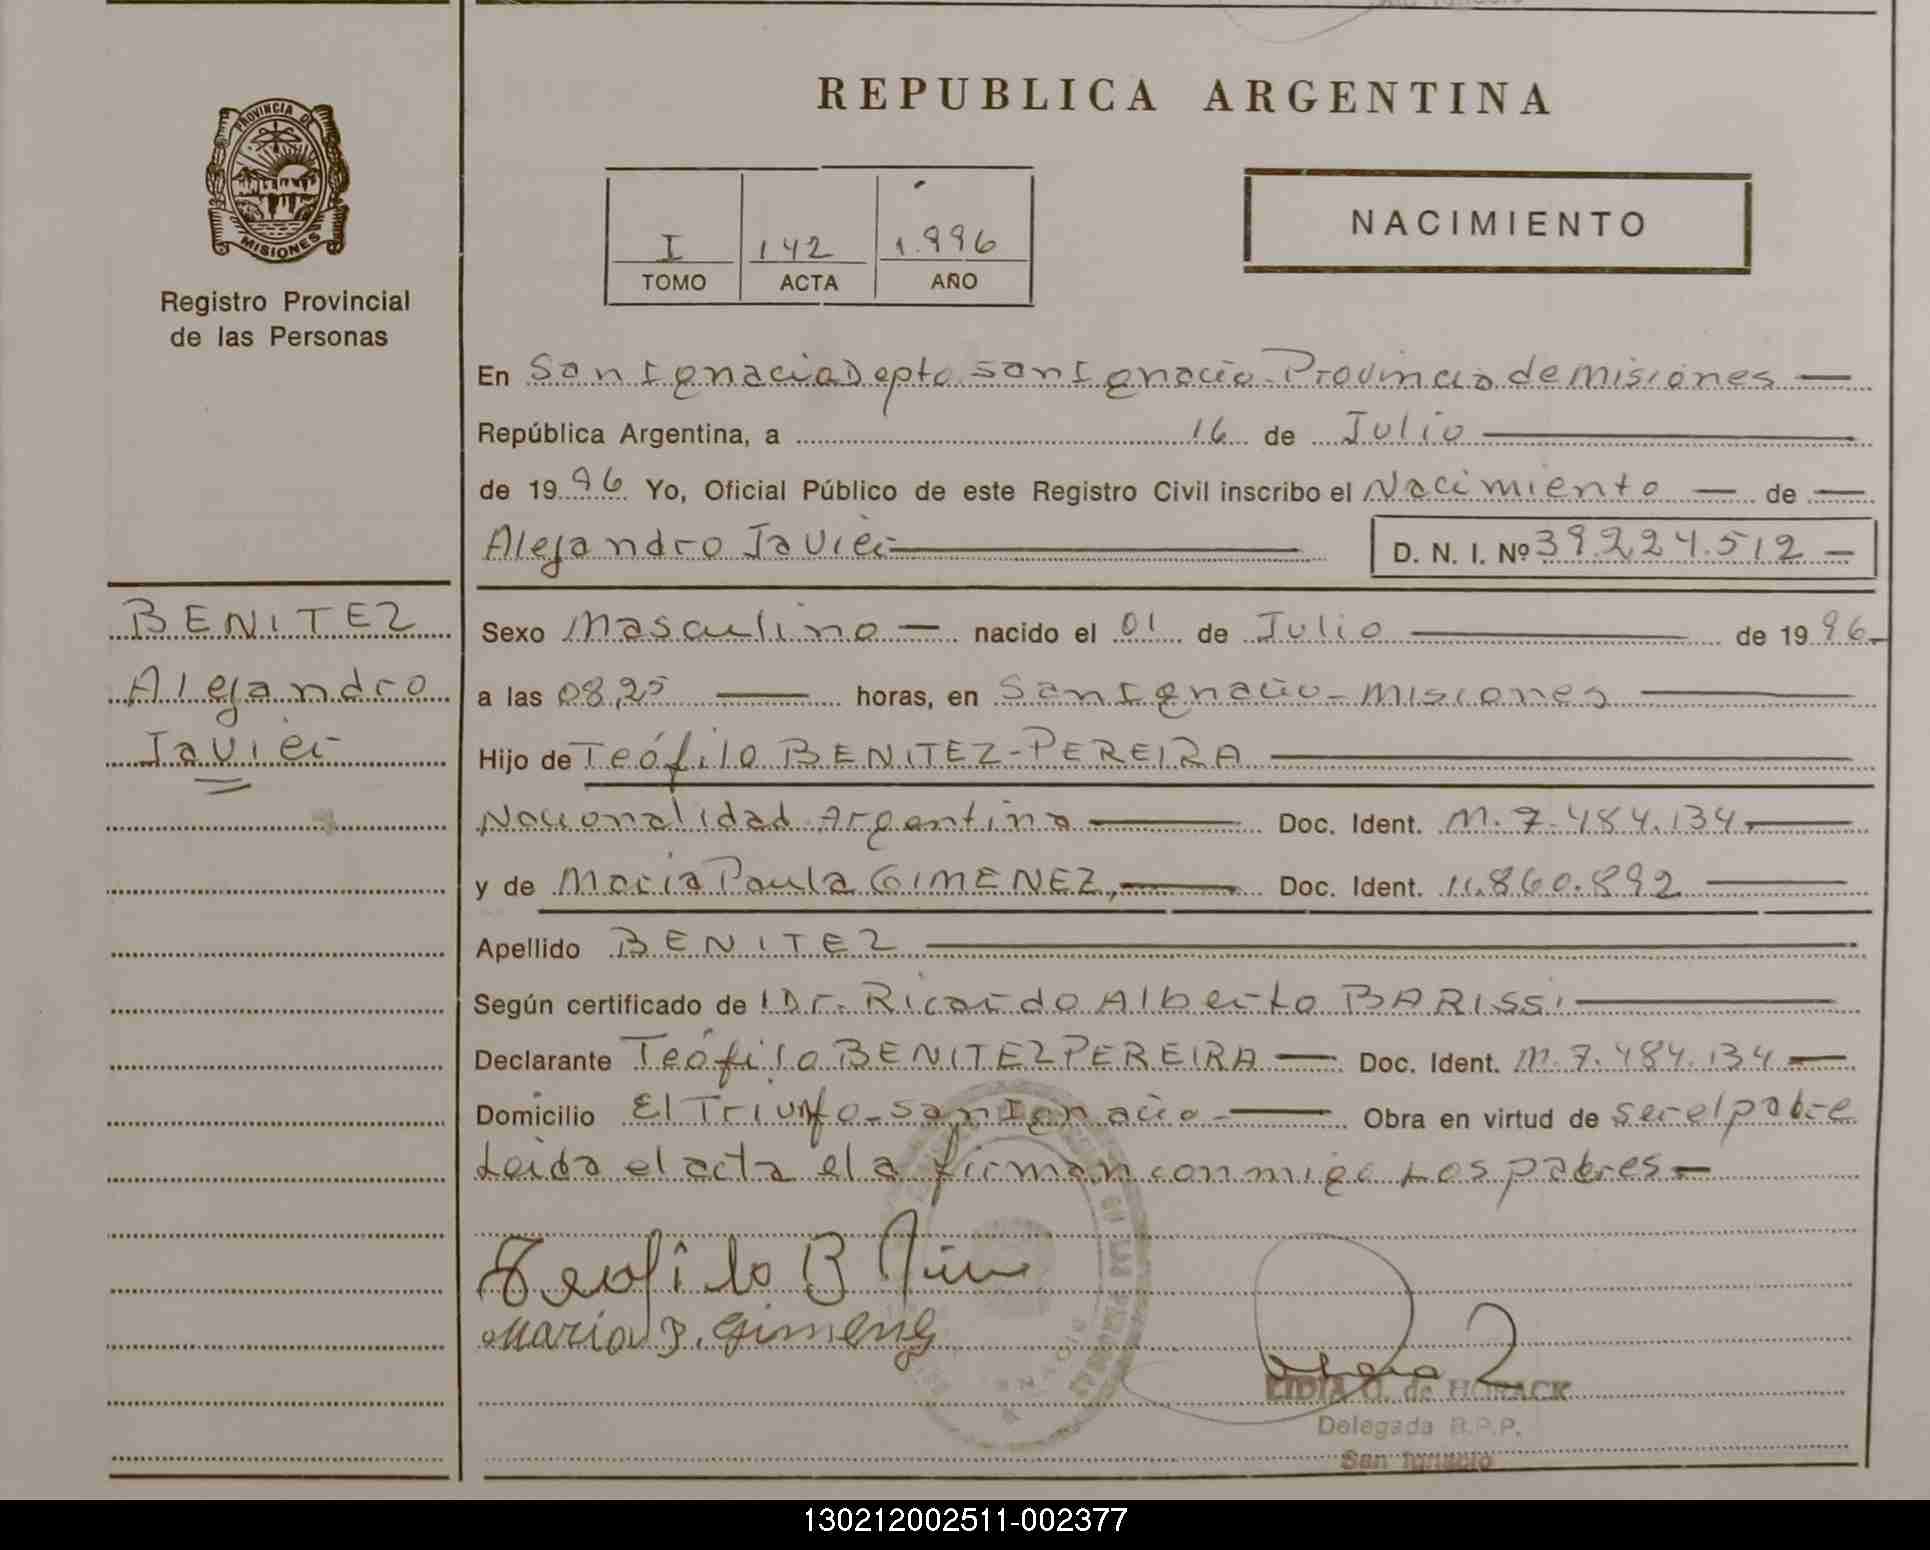 REPUBLICA ARGENTINA
PROVINCIA DE
MISIONES
Registro Provincial
de las Personas
I 142 1.996
TOMO ACTA AÑO
NACIMIENTO
En San Ignacio Depto San Ignacio Provincia de misiones —
República Argentina, a 16 de Julio
de 1996 Yo, Oficial Público de este Registro Civil inscribo el Nacimiento — de —
Alejandro Javier D. N. I. Nº 39.224.512 —
BENITEZ
Alejandro
Javier
Sexo Masculino — nacido el 01 de Julio — de 1996
a las 08,25 — horas, en San Ignacio - Misiones
Hijo de Teófilo BENITEZ - PEREIRA
Nacionalidad Argentina — Doc. Ident. M. 7.484.134
y de Maria Paula GIMENEZ, — Doc. Ident. 11.860.892
Apellido BENITEZ
Según certificado de Dr. Ricardo Alberto BARISSI
Declarante Teófilo BENITEZ PEREIRA — Doc. Ident. M. 7.484.134
Domicilio El Triunfo - San Ignacio — Obra en virtud de ser el padre
Leida el acta ela firman conmigo Los padres
Teofilo B
Maria P. Gimenez
LIDIA O. de HORACK
Delegada R.P.P.
San Ignacio
130212002511-002377